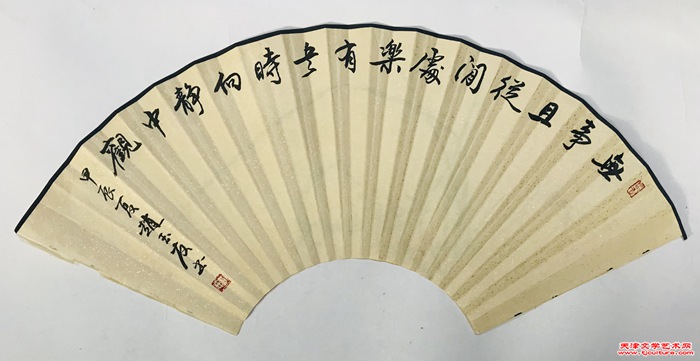 無事且從閒處樂有書時向靜中觀
甲辰夏趙玉友書
天津文学艺术网
www.tjculture.com